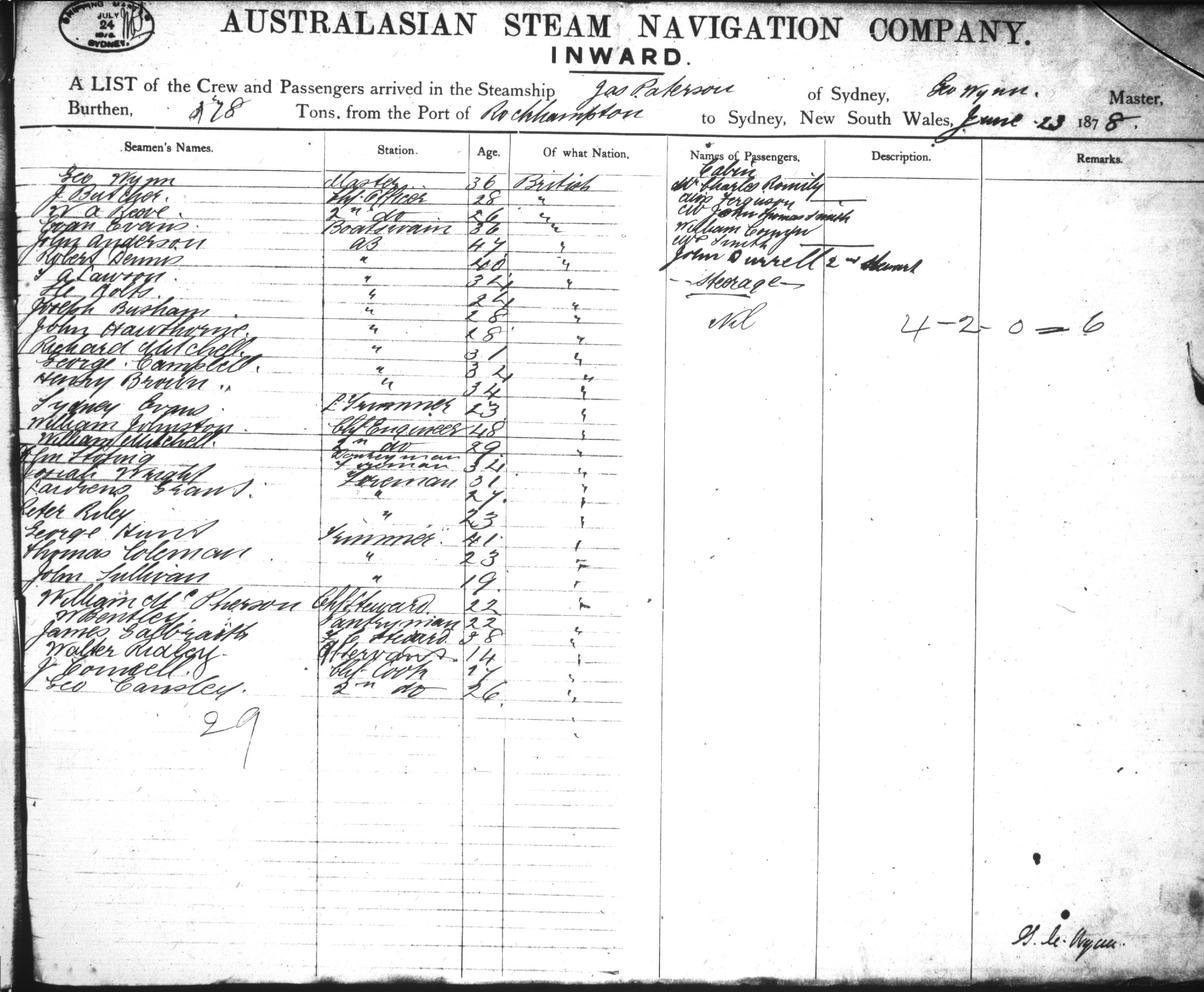 SHIPPING MASTER'S
JULY
24
SYDNEY.
AUSTRALASIAN STEAM NAVIGATION COMPANY.
INWARD.
A LIST of the Crew and Passengers arrived in the Steamship Jas Paterson of Sydney, Geo Wynn. Master,
Burthen, 178 Tons, from the Port of Rockhampton to Sydney, New South Wales, June 23 1878.
Seamen's Names. Station. Age. Of what Nation. Names of Passengers. Description. Remarks.
Cabin
Geo Wynn Master 36 British
J Butcher. Chf Officer 28 "
W A Reeve. 2nd do 26 "
Evan Evans. Boatswain 36 "
John Anderson AB 47 "
Robert Dennis " 40 "
Lawson. " 34 "
" 24
Joseph Busham. " 28 "
John Hawthorne. " 28 "
Richard Mitchell. " 31 "
George Campbell. " 34 "
Henry Brown " 34 "
Sydney Evans. L Trimmer 23 "
William Johnston. Chf Engineer 48 "
William Mitchell. 2nd do 29 "
Donkeyman 34 "
Josiah Wright Foreman 31 "
Evans. " 27. "
Peter Riley " 23 "
George Hunt Trimmer. 41. "
Thomas Coleman " 23 "
John Sullivan " 19. "
William McPherson Chf Steward 22 "
W Bentley. Pantryman 22
James Galbraith Steward 38 "
Walter Ridley. Servant 14 "
J Connell. Chf Cook "
Geo Cansley. 2nd do 26. "
29
Mr Charles Romily
Miss Ferguson
Mr John Thomas Smith
William
Mr Smith
John Durrell 2nd Steward
Steerage
Nil
4-2-0=6
G. Wynn.